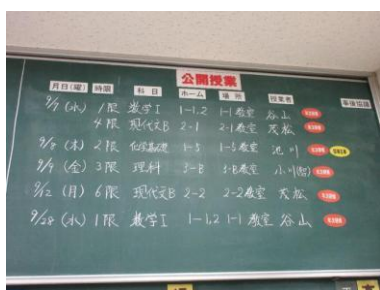 公開授業
月日(曜) 時限 科目 ホーム 場所 授業者 事後協議
9/7 (水) 1限 数学I 1-1,2 1-1教室 谷山
4限 現代文B 2-1 2-1教室 茂松
9/8 (木) 2限 化学基礎 1-5 1-5教室 池川
9/9 (金) 3限 理科 3-B 3-B教室 小川
9/12 (月) 6限 現代文B 2-2 2-2教室 茂松
9/28 (水) 1限 数学I 1-1,2 1-1教室 谷山